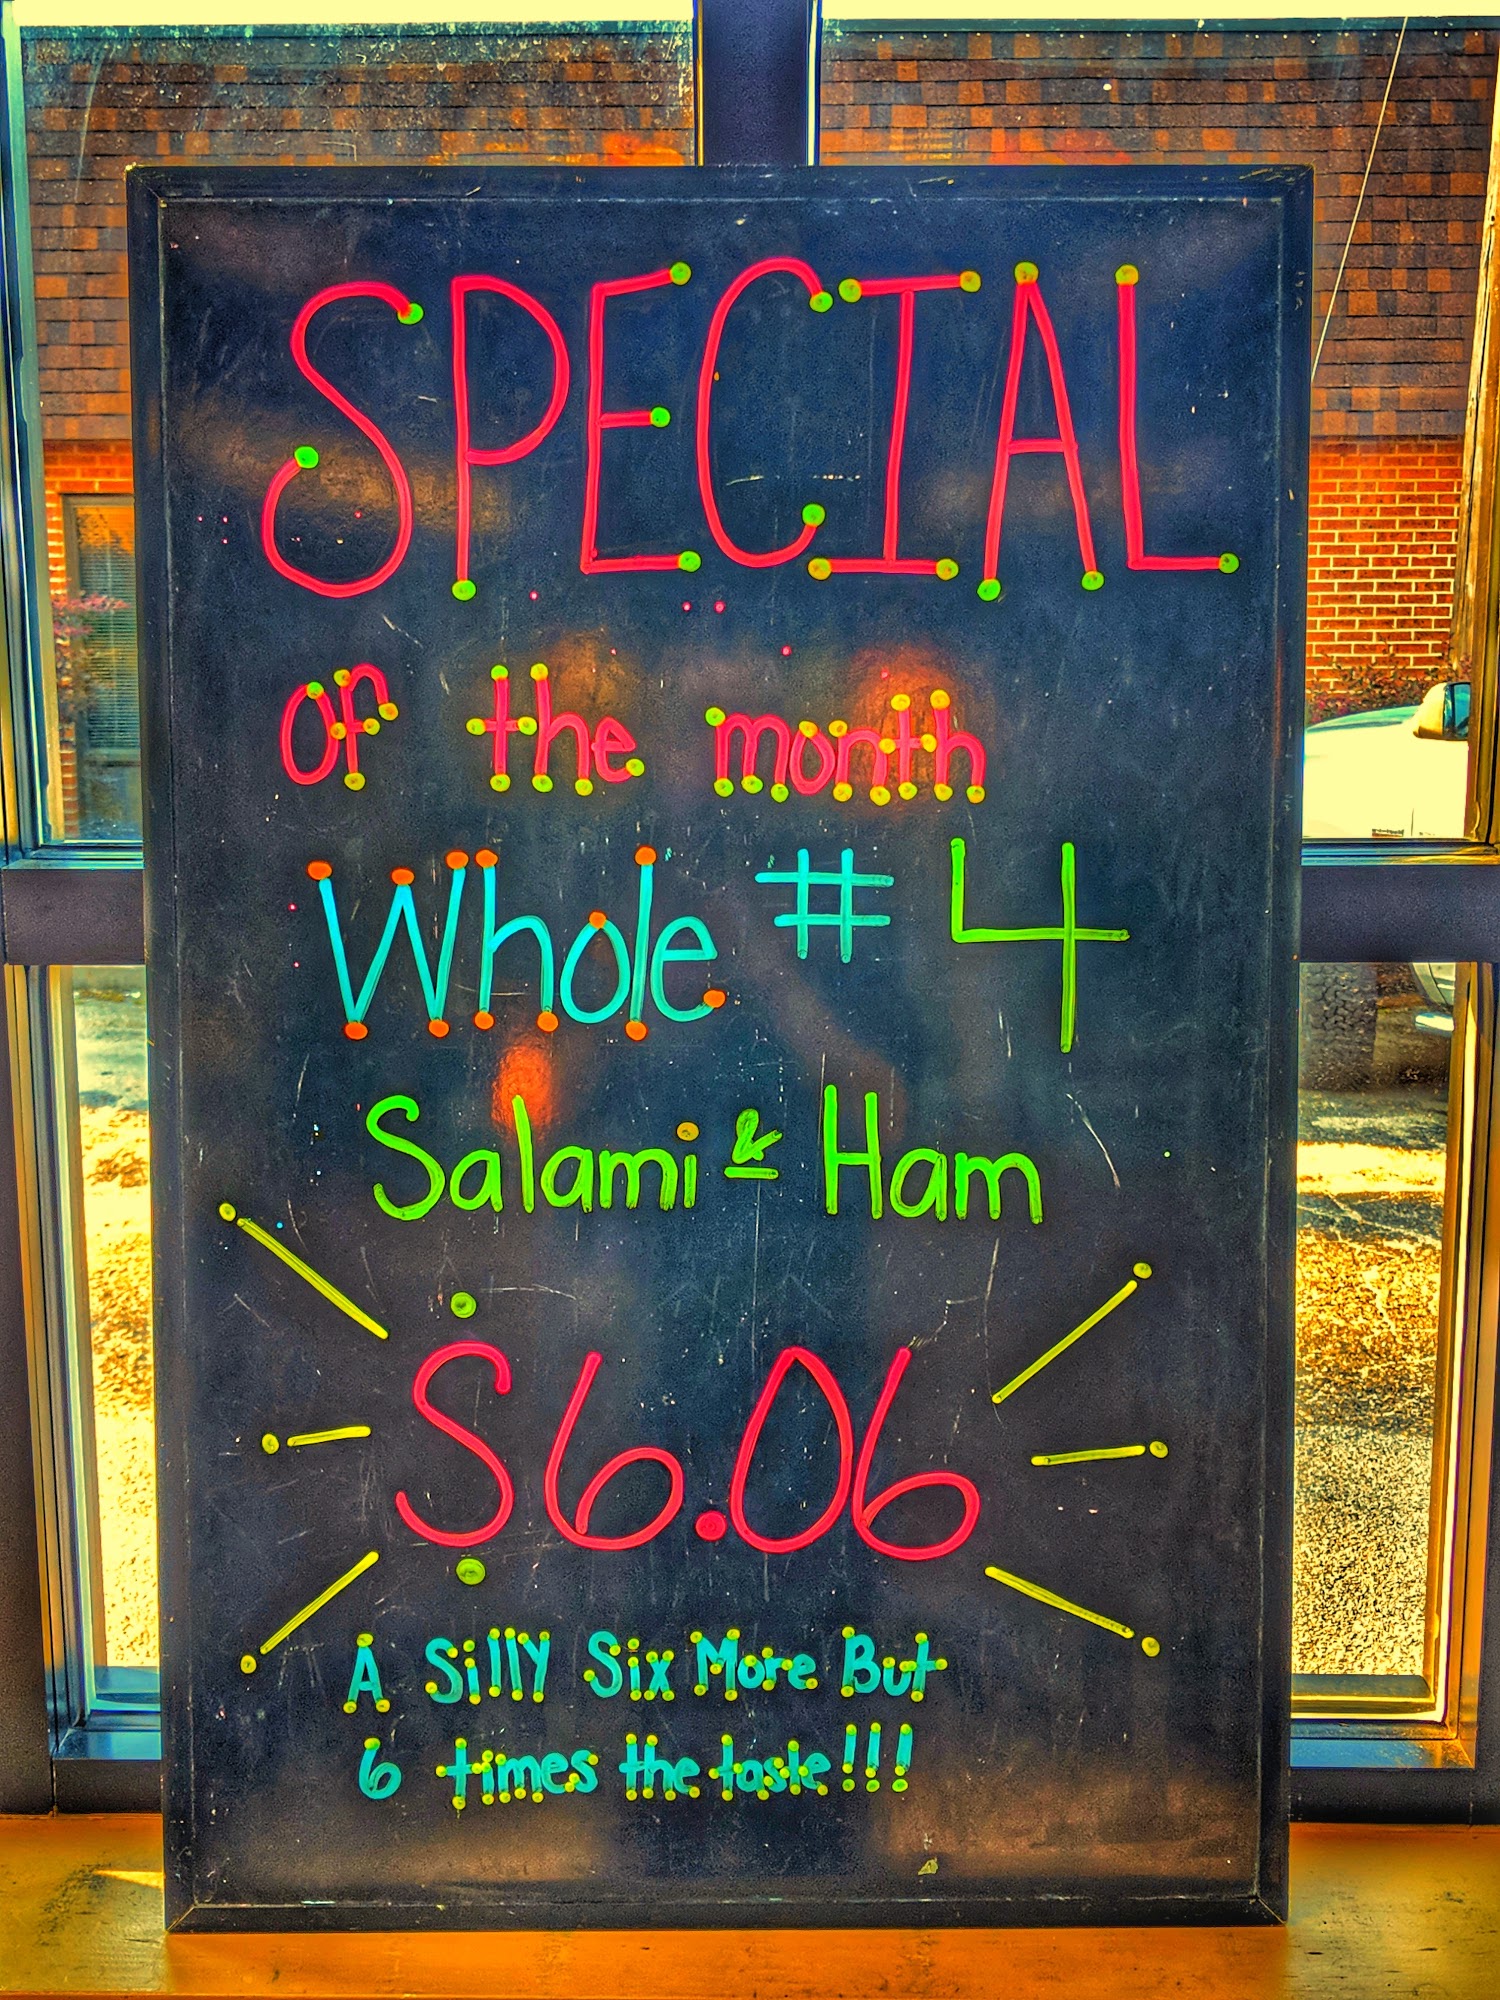 SPECIAL
of the month
Whole # 4
Salami & Ham
$6.06
A Silly Six More But
6 times the taste!!!